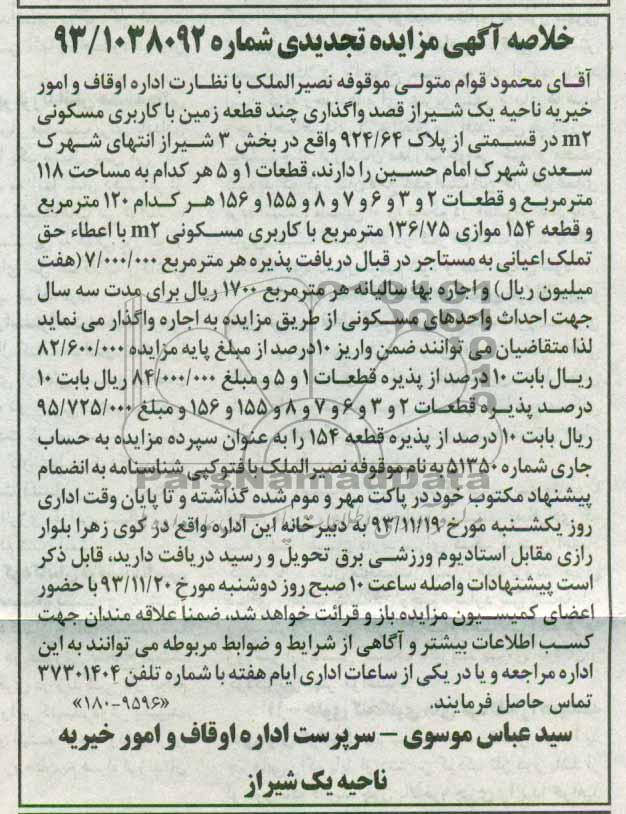 خلاصه آگهی مزایده تجدیدی شماره ۹۳/۱۰۳۸۰۹۲
آقـای محمود قوام متولـی موقوفه نصیرالملک با نظارت اداره اوقاف و امور
خیریه ناحیه یک شـیراز قصد واگذاری چند قطعه زمین با کاربری مسکونی
m۲ در قسـمتی از پلاک ۹۲۴/۶۴ واقع در بخش ۳ شـیراز انتهای شهرک
سـعدی شهرک امام حسـین را دارند، قطعات ۱ و ۵ هر کدام به مساحت ۱۱۸
مترمربـع و قطعـات ۲ و ۳ و ۶ و ۷ و ۸ و ۱۵۵ و ۱۵۶ هـر کـدام ۱۲۰ مترمربع
و قطعه ۱۵۴ موازی ۱۳۶/۷۵ مترمربع با کاربری مسـکونی m۲ با اعطاء حق
تملک اعیانی به مستاجر در قبال دریافت پذیره هر مترمربع ۷/۰۰۰/۰۰۰ (هفت
میلیون ریال) و اجاره بها سالیانه هر مترمربع ۱۷۰۰ ریال برای مدت سه سال
جهت احداث واحدهای مسـکونی از طریق مزایده به اجاره واگذار می نماید
لذا متقاضیان می توانند ضمن واریز ۱۰درصد از مبلغ پایه مزایده ۸۲/۶۰۰/۰۰۰
ریـال بابت ۱۰ درصد از پذیره قطعـات ۱ و ۵ و مبلغ ۸۴/۰۰۰/۰۰۰ ریال بابت ۱۰
درصـد پذیـره قطعـات ۲ و ۳ و ۶ و ۷ و ۸ و ۱۵۵ و ۱۵۶ و مبلغ ۹۵/۷۲۵/۰۰۰
ریال بابت ۱۰ درصد از پذیره قطعه ۱۵۴ را به عنوان سپرده مزایده به حساب
جاری شماره ۵۱۳۵۰ به نام موقوفه نصیرالملک با فتوکپی شناسنامه به انضمام
پیشنهاد مکتوب خود در پاکت مهر و موم شده گذاشته و تا پایان وقت اداری
روز یکشـنبه مورخ ۹۳/۱۱/۱۹ به دبیرخانه این اداره واقع در کوی زهرا بلوار
رازی مقابل استادیوم ورزشـی برق تحویل و رسید دریافت دارید، قابل ذکر
است پیشنهادات واصله ساعت ۱۰ صبح روز دوشنبه مورخ ۹۳/۱۱/۲۰ با حضور
اعضای کمیسـیون مزایده باز و قرائت خواهد شد، ضمنا علاقه مندان جهت
کسـب اطلاعات بیشتر و آگاهی از شرایط و ضوابط مربوطه می توانند به این
اداره مراجعه و یا در یکی از ساعات اداری ایام هفته با شماره تلفن ۳۷۳۰۱۴۰۴
تماس حاصل فرمایند. «۱۸۰-۹۵۹۶»
سید عباس موسوی – سرپرست اداره اوقاف و امور خیریه
ناحیه یک شیراز
ParsNamadData